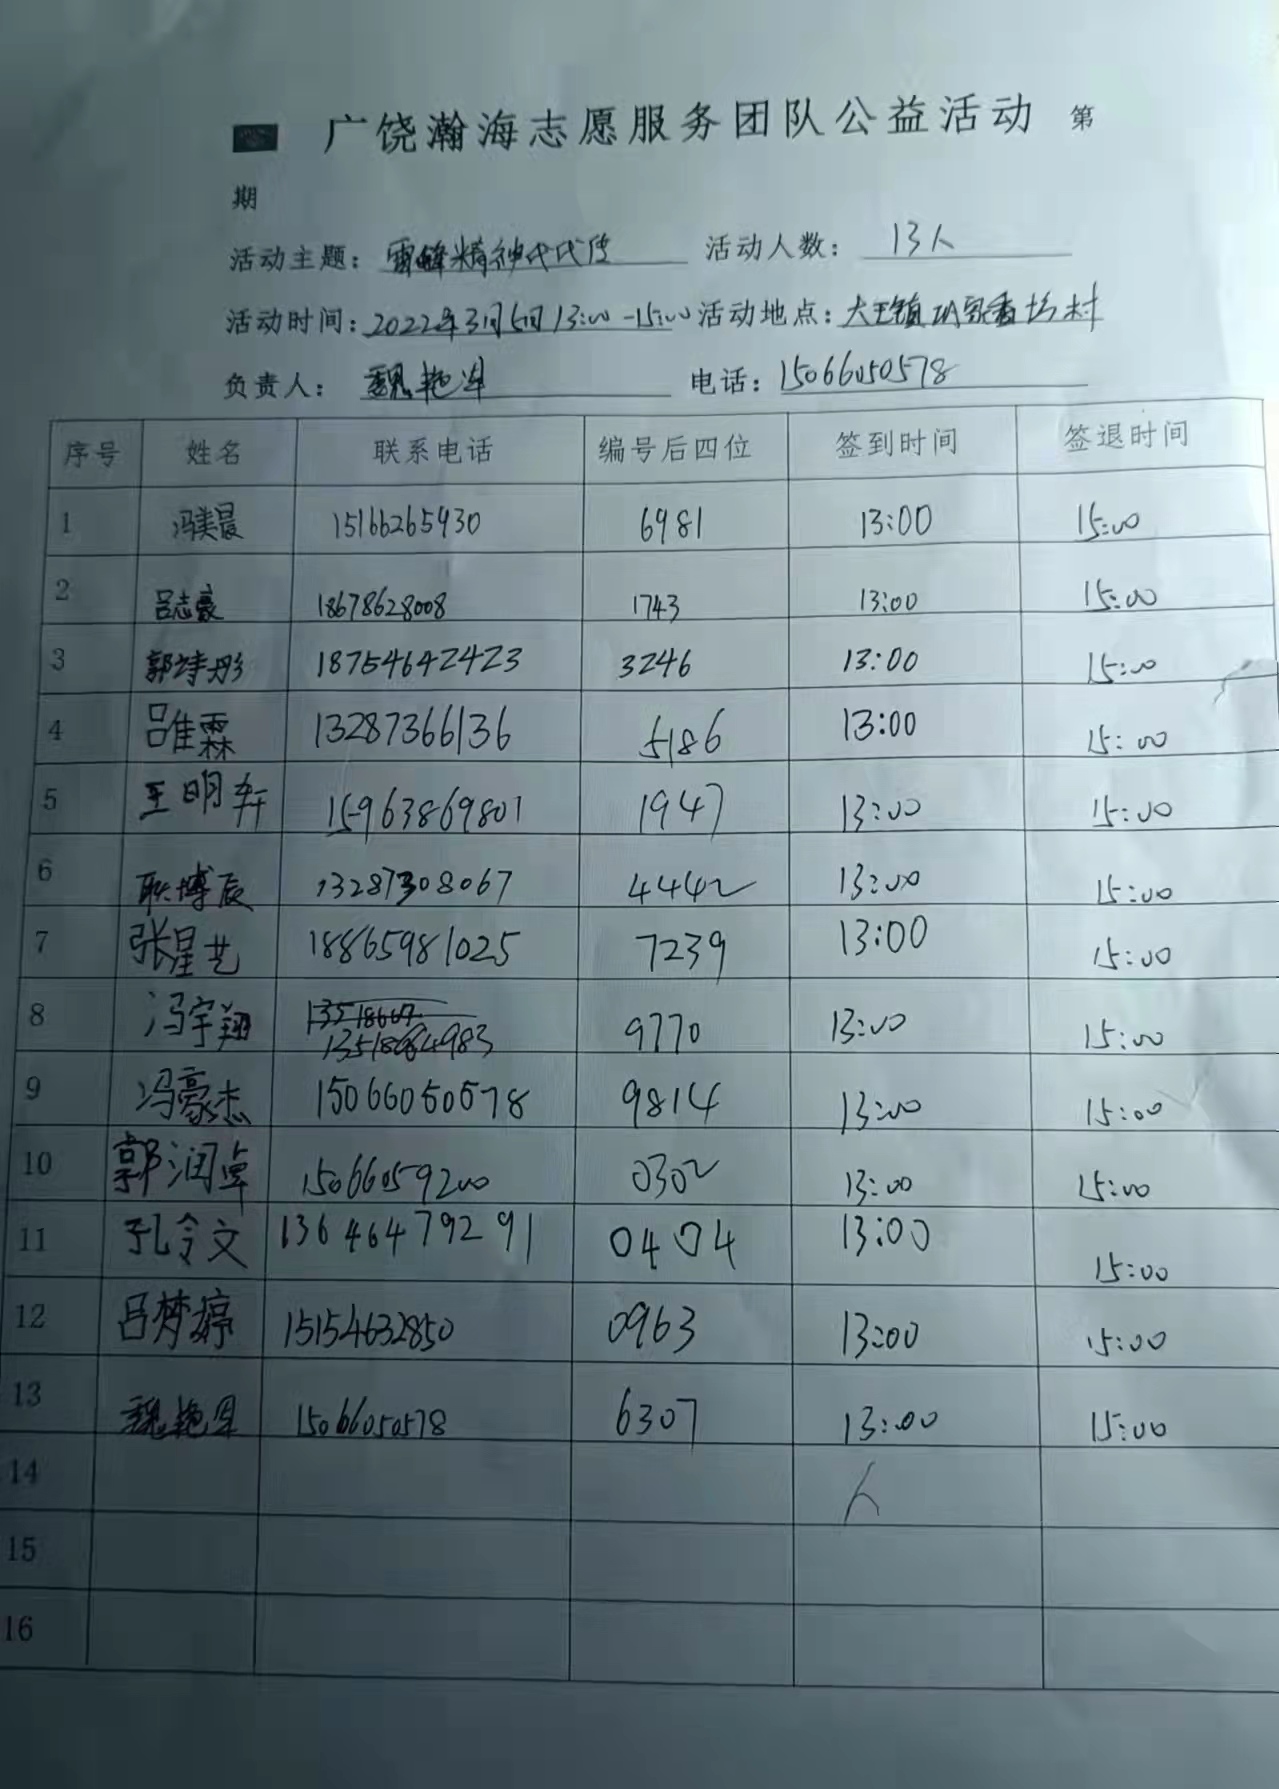 广饶瀚海志愿服务团队公益活动 第
期
活动主题: 雷锋精神代代传 活动人数: 13人
活动时间: 2022年3月5日 13:00-15:00 活动地点: 大王镇
负责人: 魏艳 电话: 15066050578
序号 姓名 联系电话 编号后四位 签到时间 签退时间
1 冯美晨 15166265930 6981 13:00 15:00
2 吕志豪 18678628008 1743 13:00 15:00
3 郭诗彤 18754642423 3246 13:00 15:00
4 吕佳霖 13287366136 5186 13:00 15:00
5 王明轩 15963869801 1947 13:00 15:00
6 耿博辰 13287308067 4442 13:00 15:00
7 张星艺 18865981025 7239 13:00 15:00
8 冯宇翔 9770 13:00 15:00
9 冯豪杰 15066050578 9814 13:00 15:00
10 郭润卓 15066059200 0302 13:00 15:00
11 孔令文 13646479291 0404 13:00 15:00
12 吕梦婷 15154632850 0963 13:00 15:00
13 魏艳 15066050578 6307 13:00 15:00
14
15
16